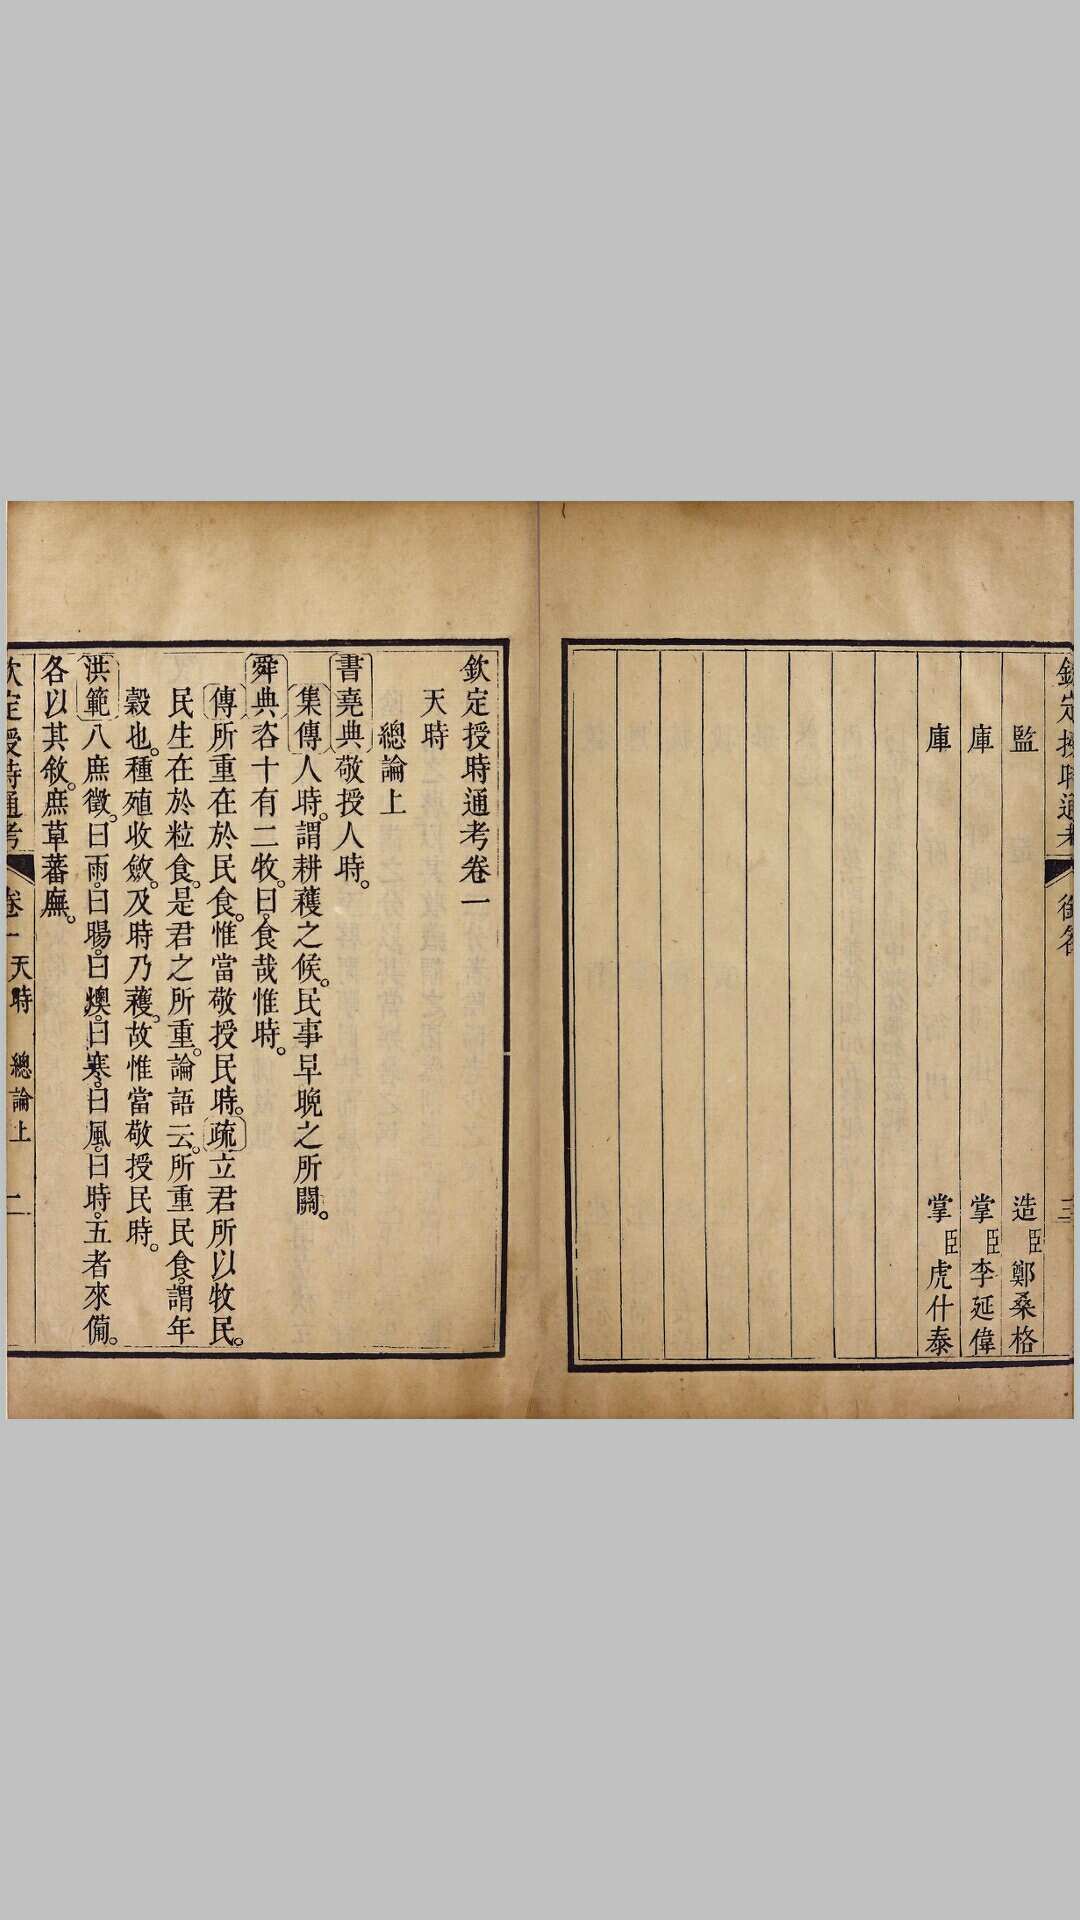 欽定授時通考 銜名 三
監 造臣鄭桑格
庫 掌臣李延偉
庫 掌臣虎什泰
欽定授時通考卷一
天時
總論上
書堯典敬授人時。
集傳人時。謂耕穫之候。民事早晚之所關。
舜典咨十有二牧。曰。食哉惟時。
傳所重在於民食。惟當敬授民時。疏立君所以牧民。
民生在於粒食。是君之所重。論語云。所重民食。謂年
穀也。種殖收斂。及時乃穫。故惟當敬授民時。
洪範八庶徵。曰雨。曰暘。曰燠。曰寒。曰風。曰時。五者來備。
各以其敘。庶草蕃廡。
欽定授時通考 卷一 天時 總論上 一